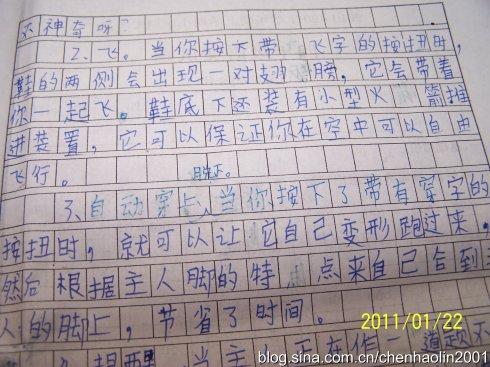 神奇呀
2、飞。当你按下带飞字的按扭时,
鞋的两侧会出现一对翅膀,它会带着
你一起飞。鞋底下还装有小型火箭推
进装置,它可以保证你在空中可以自由
飞行。
3、自动穿上、脱下。当你按下了带有穿字的
按扭时,就可以让它自己变形跑过来,
然后根据主人脚的特点来自己合到主
人的脚上,节省了时间。
2011/01/22
提醒 当主人正在作一道题
blog.sina.com.cn/chenhaolin2001